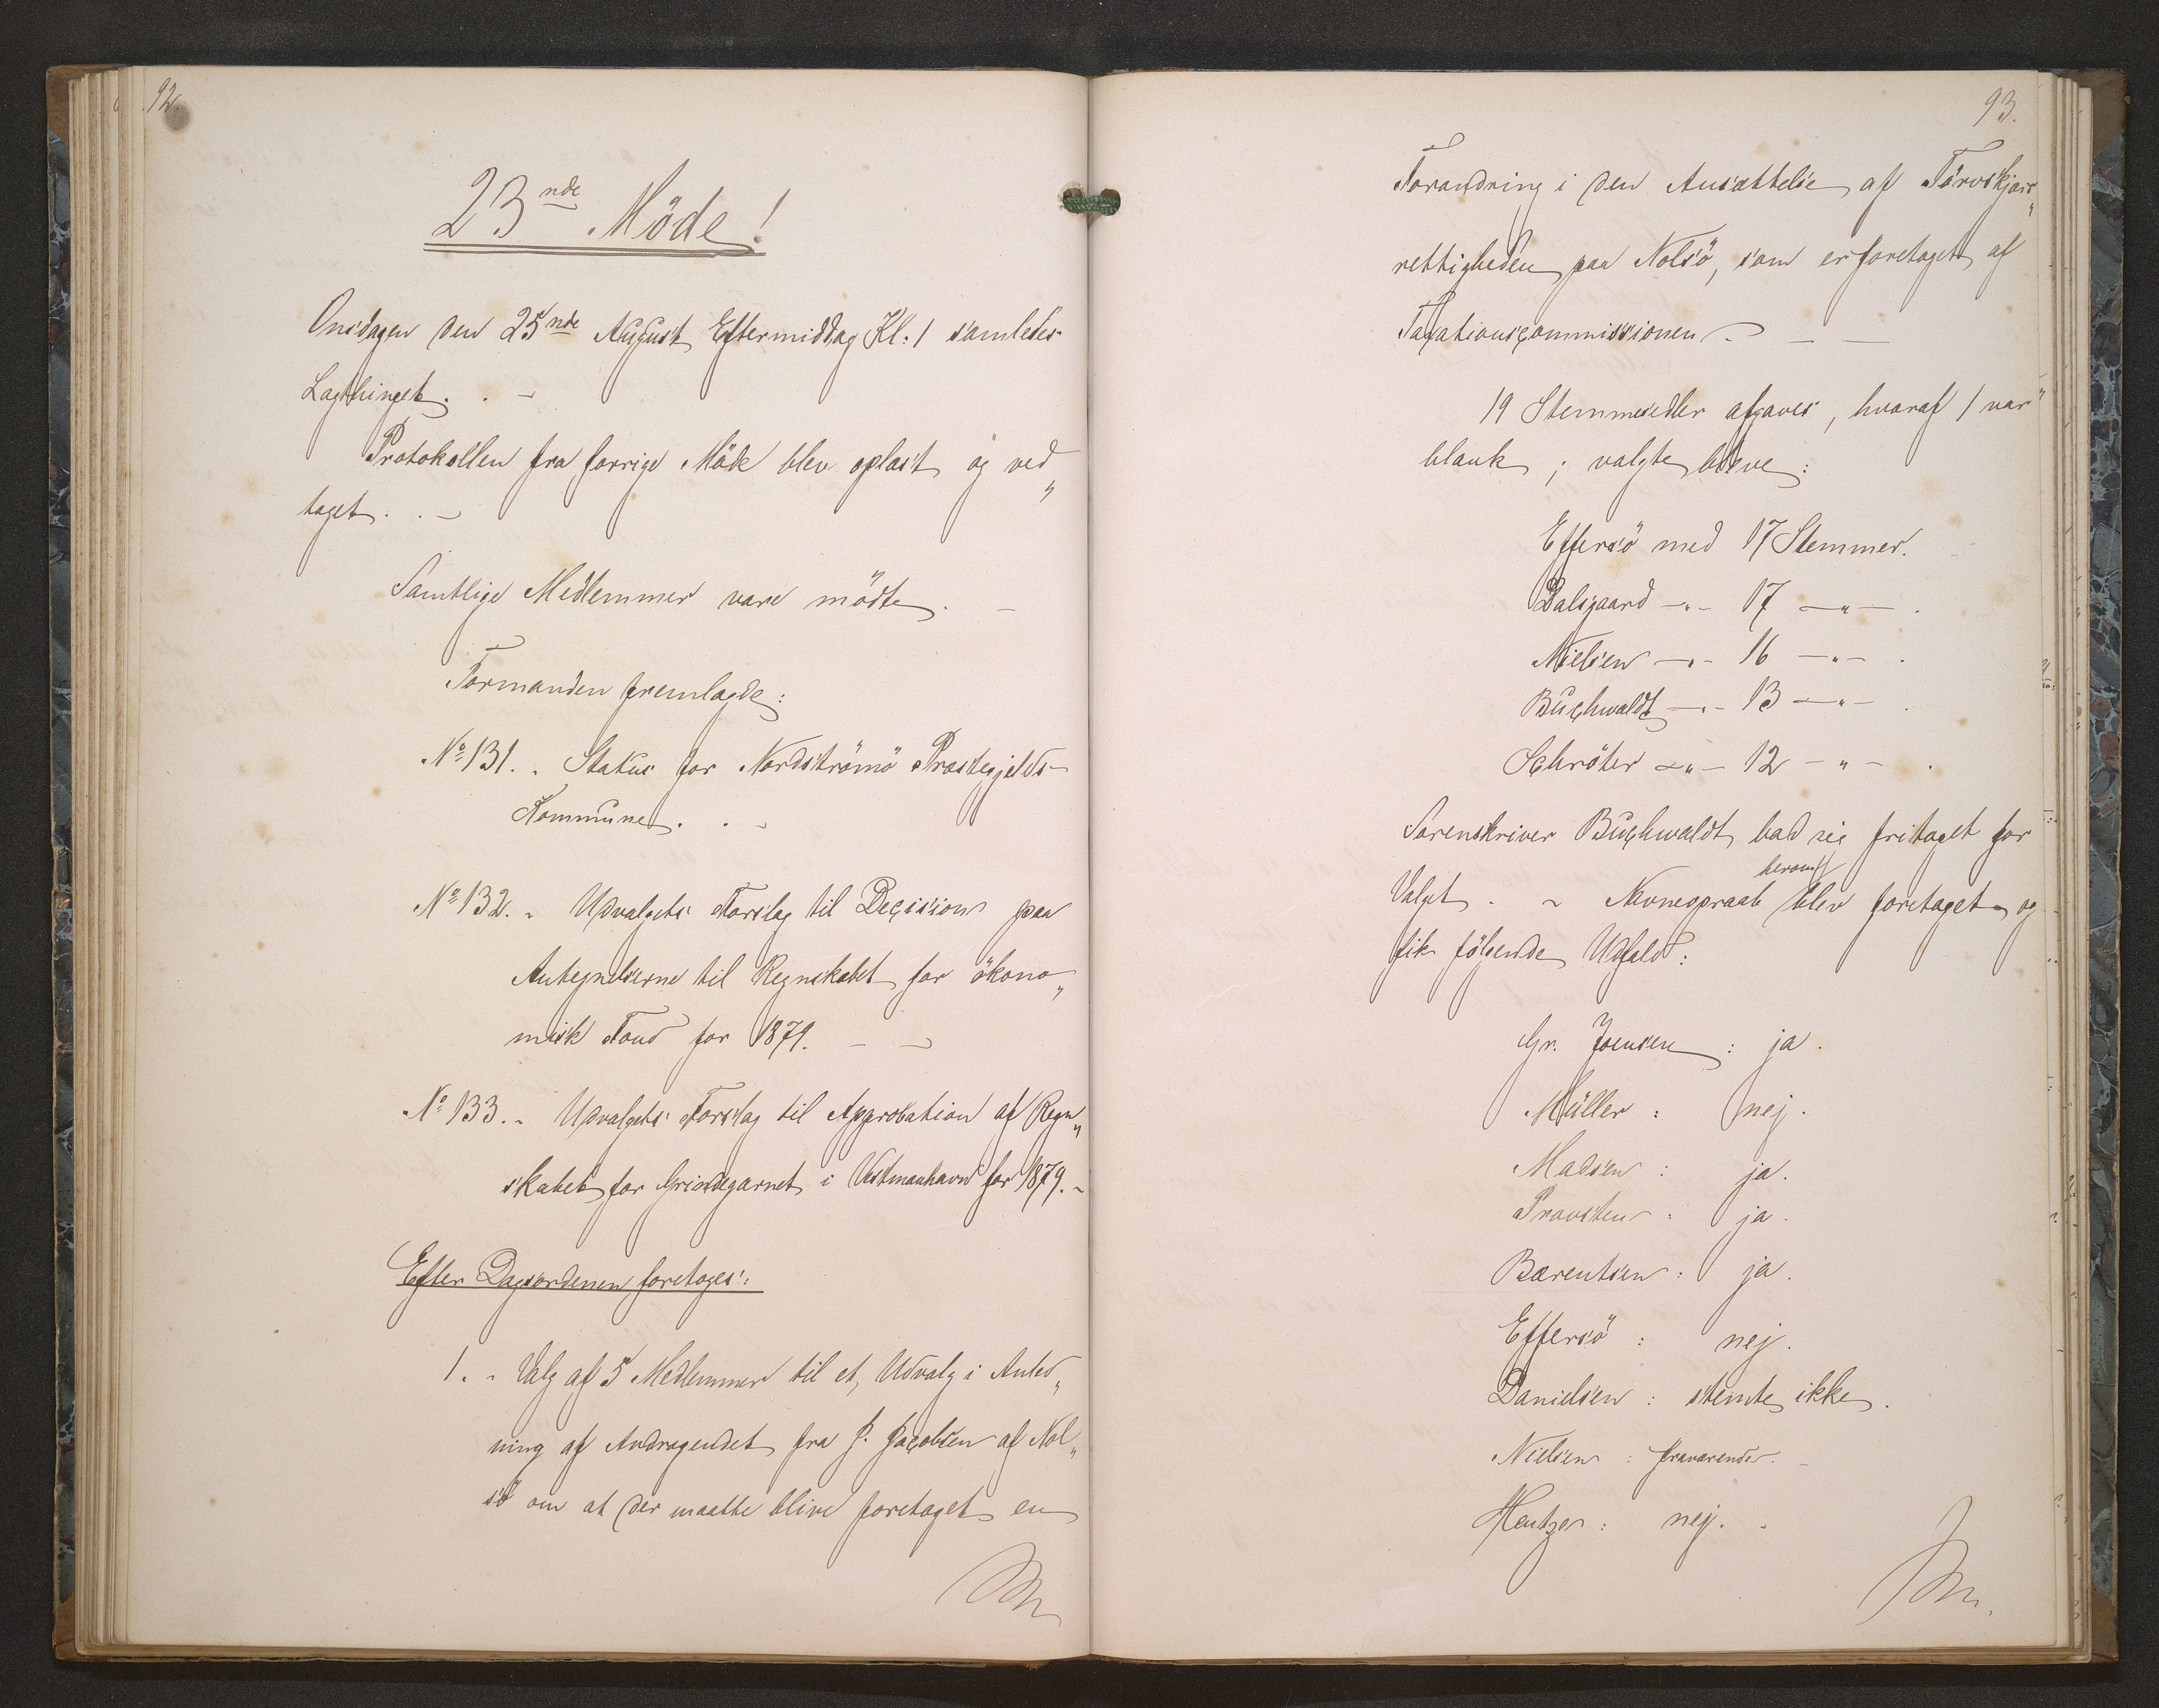 92.
23nde Möde!
Onsdagen den 25nde August Eftermiddag Kl: 1 samledes
Lagthinget. . –
Protokollen fra forrige Möde blev oplæst og ved„
taget. . –
Samtlige Medlemmer vare mödte. –
Formanden fremlagde:
No 131. . Status for Nordströmö Præstegjelds-
Kommune. . –
No 132. . Udvalgets Forslag til Decision paa
Antegnelserne til Regnskabet for ökono„
misk Fond for 1879. – –
No 133. . Udvalgets Forslag til Approbation af Regn„
skabet for Grindegarnet i Vestmanhavn for 1879. –
Efter Dagsordenen foretoges:
1. . Valg af 5 Medlemmer til et, Udvalg i Anled„
ning af Andragendet fra J. Jacobsen af Nol„
sö om at der maatte blive foretaget en
93.
Forandring i den Ansættelse af Törvskjærs„
rettigheden paa Nolsö, som er foretaget af
Taxationscommissionen. – – –
19 Stemmesedler afgaves, hvoraf 1 var
blank; valgte bleve:
Effersö med 17 Stemmer.
Dalsgaard –„– 17 –„– .
Nielsen –„– 16 –„– .
Buchwaldt –„– 13 –„– .
Schröter –„– 12 –„– .
Sorenskriver Buchwaldt bad sig fritaget for
Valget. – Navneopraab herom blev foretaget og
fik fölgende Udfald:
Gr. Joensen: ja.
Müller: nej.
Madsen: ja.
Provsten: ja.
Bærentsen: ja.
Effersö: nej.
Danielsen: stemte ikke.
Nielsen: fraværende. –
Hentze: nej. .